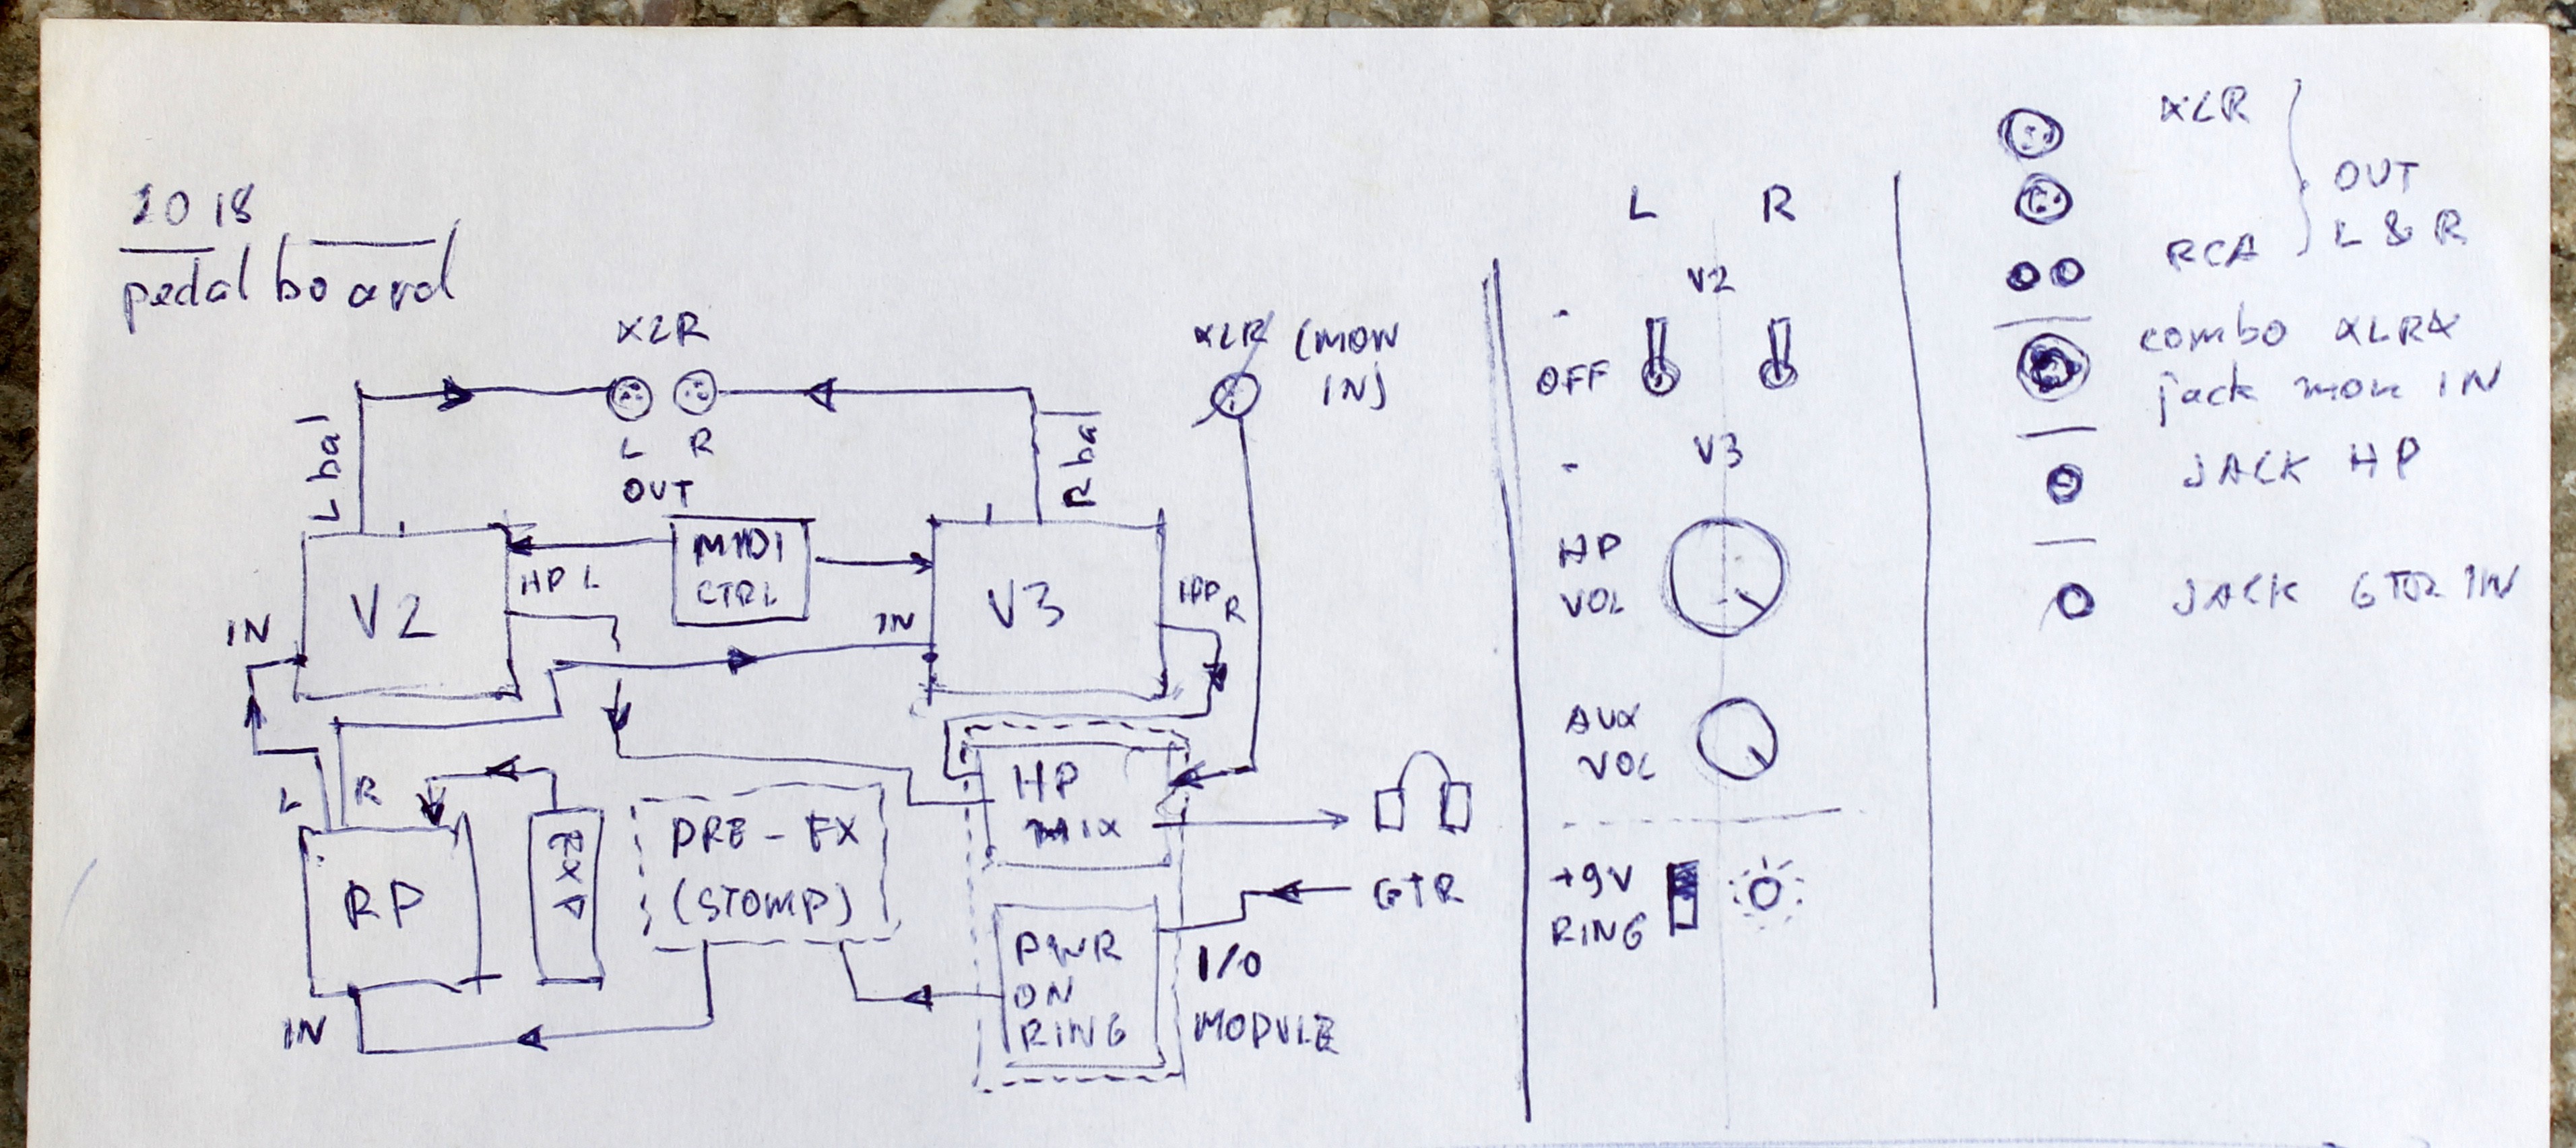 2018
pedalboard
XLR
L R
OUT
XLR (MON
IN)
L bal
R bal
MIDI
CTRL
V2
HP L
IN
V3
IN
HP R
L R
RP
IN
EXP
PRE-FX
(STOMP)
HP
MIX
GTR
PWR
ON
RING
I/O
MODULE
L R
V2
OFF
V3
HP
VOL
AUX
VOL
+9V
RING
XLR
OUT
L & R
RCA
combo XLR &
jack mon IN
JACK HP
JACK GTR IN